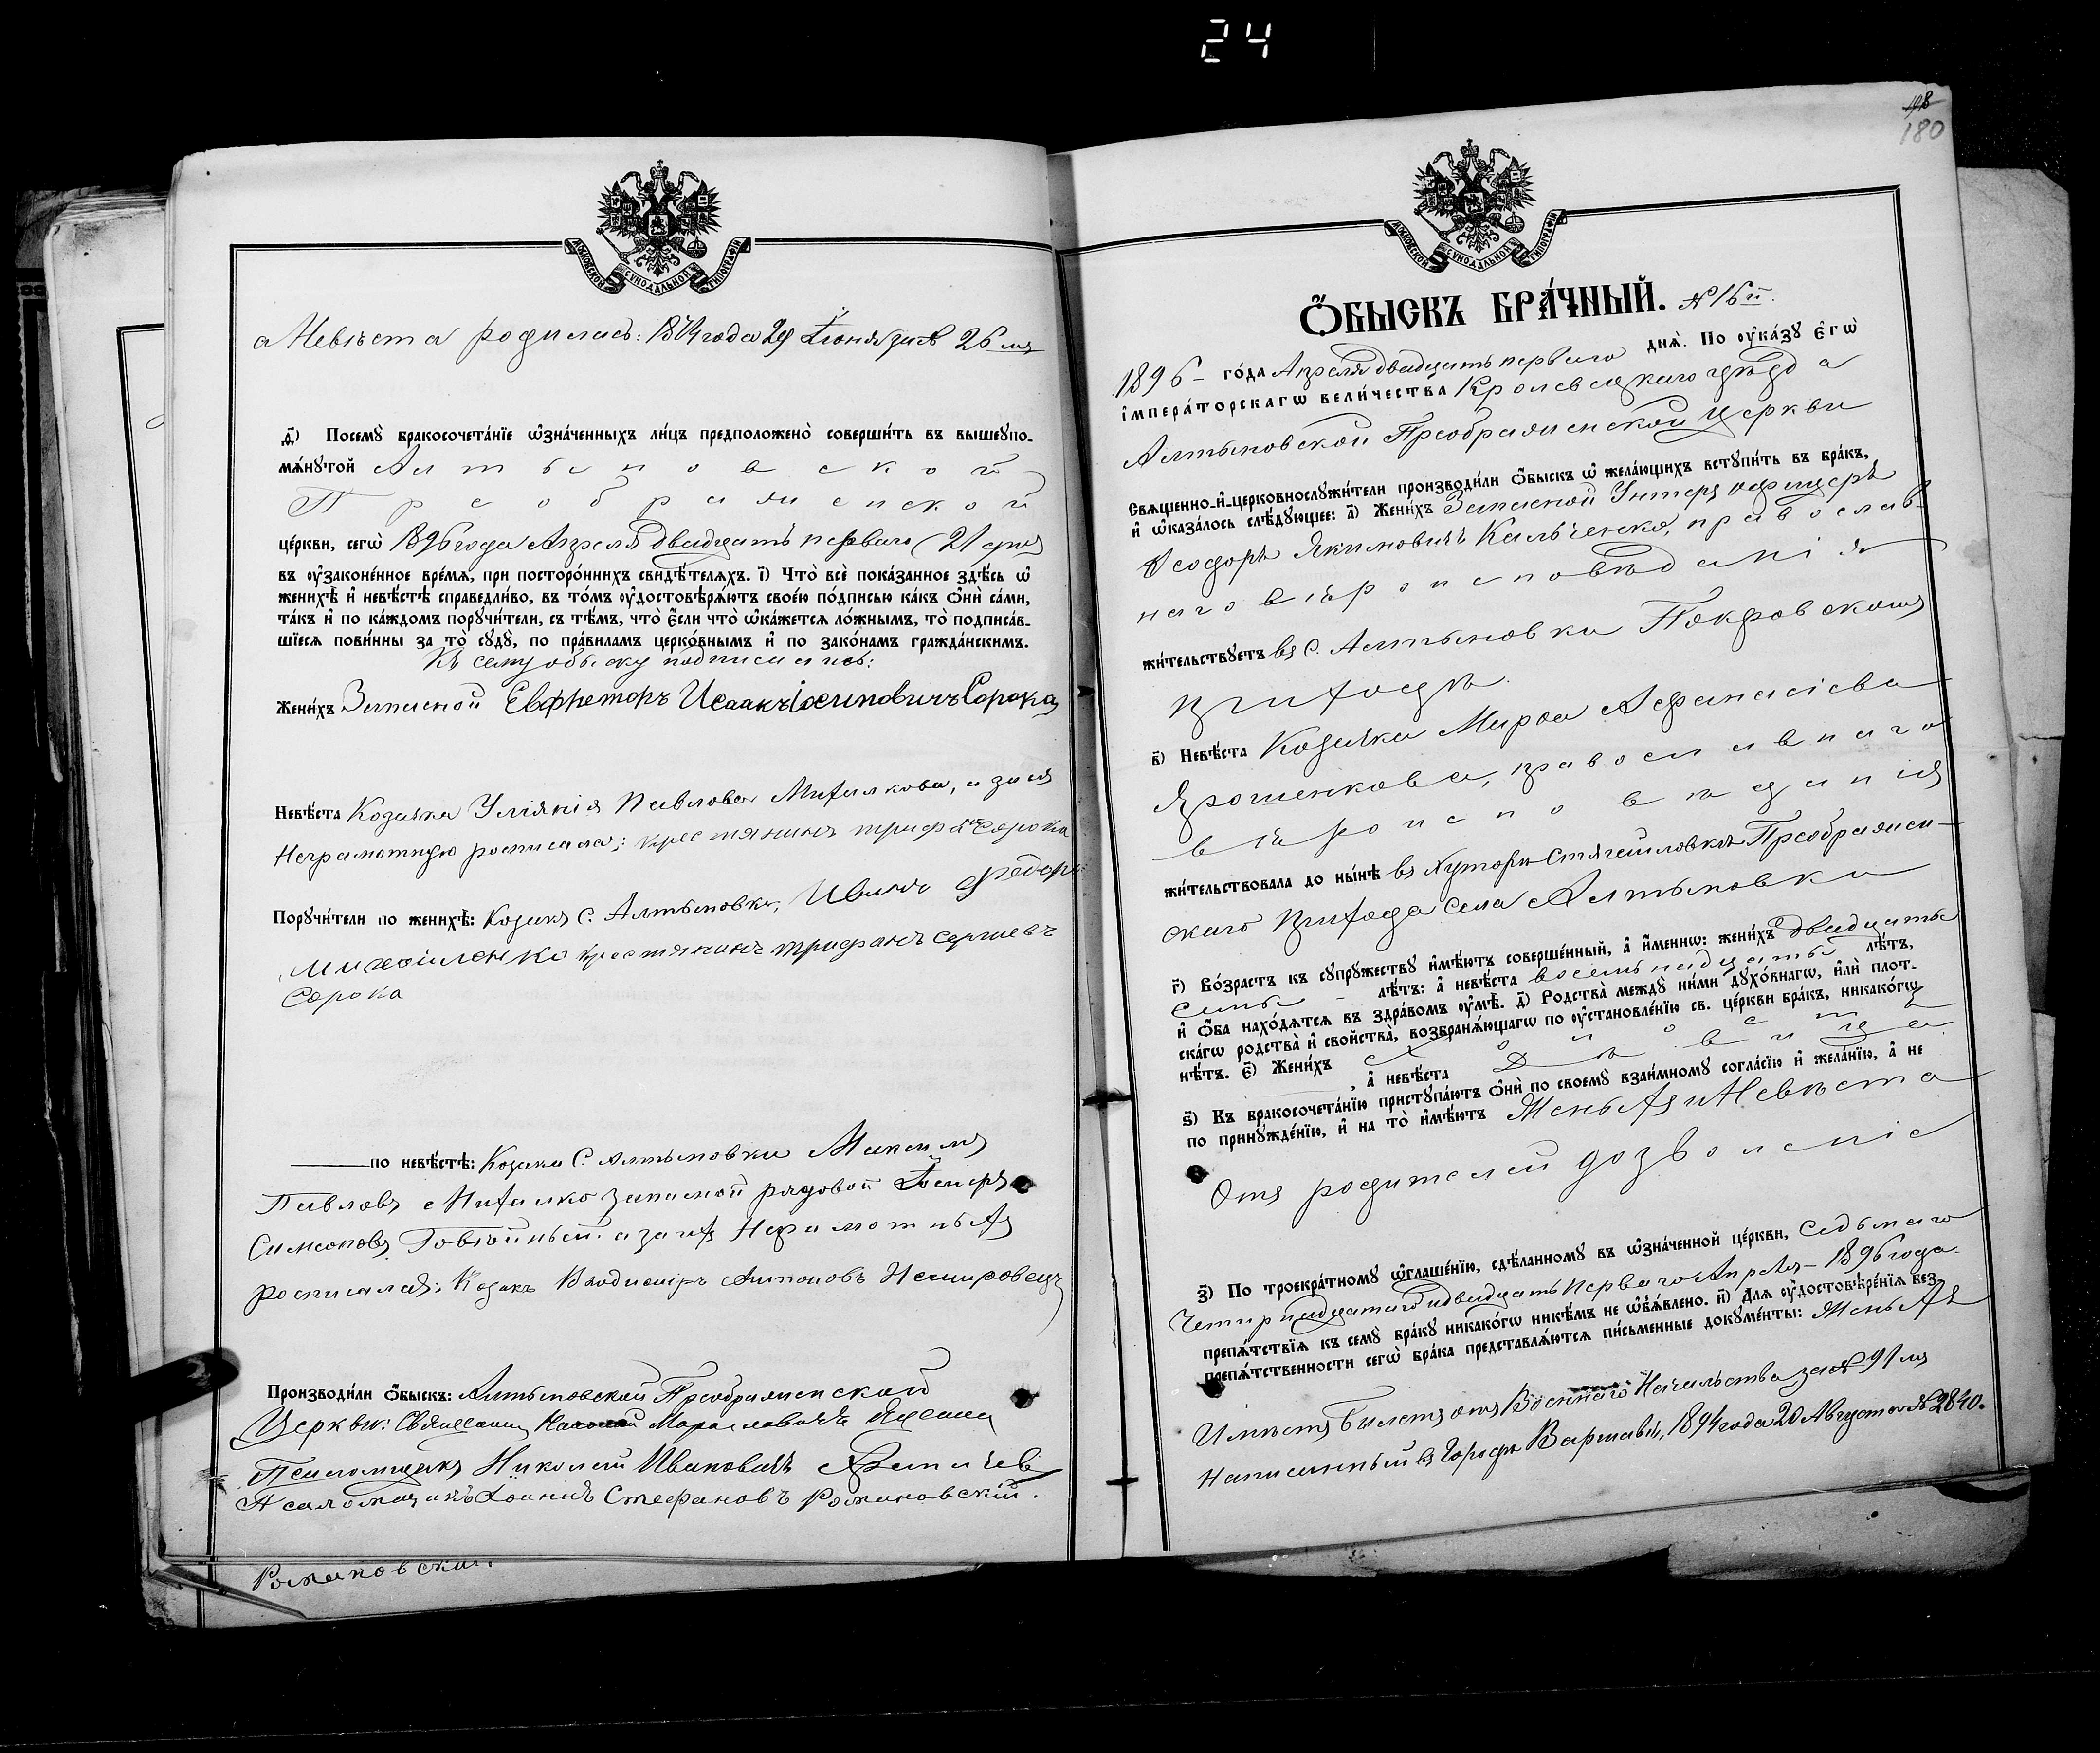 24
МОСКОВСКОЙ СѴНОДАЛЬНОЙ ТИПОГРАФІИ
а Невѣста родилась: 1874 года 29 Іюня за № 26мъ
д҃) Посемꙋ̀ бракосочета́нїе ѡ҆зна́ченныхъ ли́цъ предположено̀ соверши́ть въ вышеꙋпо-
мѧ́нꙋтой Алтыновской
Преображенской
це́ркви, сегѡ̀ 1896 года Апреля двадцать перваго (21 дня
въ ᲂу҆законе́нное вре́мѧ, при посторо́ннихъ свидѣ́телѧхъ. і҃) Что̀ всѐ пока́занное здѣ́сь ѡ҆
женихѣ̀ и҆ невѣ́стѣ справедли́во, въ то́мъ ᲂу҆достовѣрѧ́ютъ свое́ю по́дписью ка́къ ѻ҆нѝ са́ми,
та́къ и҆ по ка́ждомъ порꙋчи́тели, съ тѣ́мъ, что̀ є҆́сли что̀ ѡ҆ка́жетсѧ ло́жнымъ, то̀ подписа́в-
шїесѧ пови́нны за то̀ сꙋдꙋ̀, по пра́виламъ церко́внымъ и҆ по зако́намъ гражда́нскимъ.
Къ сему обыску подписались:
Жени́хъ Запасной Ефрейторъ Исаакъ Іосиповичъ Сорока
Невѣ́ста Козачка Уліянія Павлова Михалкова, а за ея
Неграмотную росписался: крестянинъ трифанъ Сорока
Порꙋчи́тели по женихѣ̀: Козакъ С. Алтыновки, Иванъ Федоръ
Михайленко крестянинъ трифанъ Сергиевъ
Сорока
по невѣ́стѣ: Козаки С. Алтыновки Максимъ
Павловъ Михалко запасной рядовой
Симеоновъ а за их Неграмотныхъ
росписался: Козакъ Владимиръ Антоновъ Немировецъ
Производи́ли ѻ҆́быскъ: Алтыновской Преображенской
Церкви: Священникъ
Псаломщикъ Николай Ивановичъ
Псаломщикъ Іоаннъ Стефановъ Романовскій.
Романовскій.
198
180
МОСКОВСКОЙ СѴНОДАЛЬНОЙ ТИПОГРАФІИ
Ѻ҆БЫСКЪ БРА́ЧНЫЙ. № 16й.
1896 - го́да Апреля двадцать перваго днѧ̀. По ᲂу҆ка́зꙋ є҆гѡ̀
і҆мпера́торскагѡ вели́чества Кролевецкаго уѣзда
Алтыновской Преображенской Церкви
Свѧщенно-и҆-церковнослꙋжи́тели производи́ли ѻ҆́быскъ ѡ҆ жела́ющихъ встꙋпи́ть въ бра́къ,
и҆ ѡ҆каза́лось слѣ́дꙋющее: а҃) Жени́хъ Запасной Унтеръ офицеръ
Феодоръ Якимовичъ Кальченко, православ-
наго вѣроисповѣданія
жи́тельствꙋетъ въ С. Алтыновки Покровскомъ
приходѣ.
в҃) Невѣ́ста Козачка Марфа Афанасіева
Ярошенкова, православнаго
вѣроисповѣданія
жи́тельствовала до ны́нѣ въ Хуторѣ Преображен-
скаго прихода Села Алтыновки
г҃) Во́зрастъ къ сꙋпрꙋ́жествꙋ и҆мѣ́ютъ соверше́нный, а҆ и҆́менно: жени́хъ двадцать
семь - лѣ́тъ: а҆ невѣ́ста восемнадцать лѣ́тъ,
и҆ ѻ҆́ба нахо́дѧтсѧ въ здра́вомъ ᲂу҆мѣ̀. д҃) Родства̀ междꙋ̀ ни́ми дꙋхо́внагѡ, и҆лѝ пло́т-
ска́гѡ родства̀ и҆ сво́йства̀, возбранѧ́ющагѡ по ᲂу҆становле́нїю св. це́ркви бра́къ, никако́гѡ
нѣ́тъ. є҃) Жени́хъ Холостъ
, а҆ невѣ́ста Дѣвица.
ѕ҃) Къ бракосочета́нїю пристꙋпа́ютъ ѻ҆нѝ по своемꙋ̀ взаи́мномꙋ согла́сїю и҆ жела́нїю, а҆ не
по принꙋжде́нїю, и҆ на то̀ и҆мѣ́ютъ Женыхъ и Невѣста
Отъ родителей дозволеніе
з҃) По троекра́тномꙋ ѡ҆глаше́нїю, сдѣ́ланномꙋ въ ѡ҆зна́ченной це́ркви, Седьмаго
Четирнадцатаго и двадцать Перваго Апреля - 1896 года.
препѧ́тствїѧ къ семꙋ̀ бра́кꙋ никако́гѡ никѣ́мъ не ѡ҆б̾ѧ́влено. и҃) Длѧ ᲂу҆достовѣре́нїѧ без-
препѧ́тственности сегѡ̀ бра́ка представлѧ́ютсѧ пи́сьменные докꙋме́нты: Женыхъ
Имѣетъ билетъ отъ Военнаго Начальства за № 91мъ
Написанный въ Городѣ Варшавѣ, 1894 года 20 Августа № 2840.